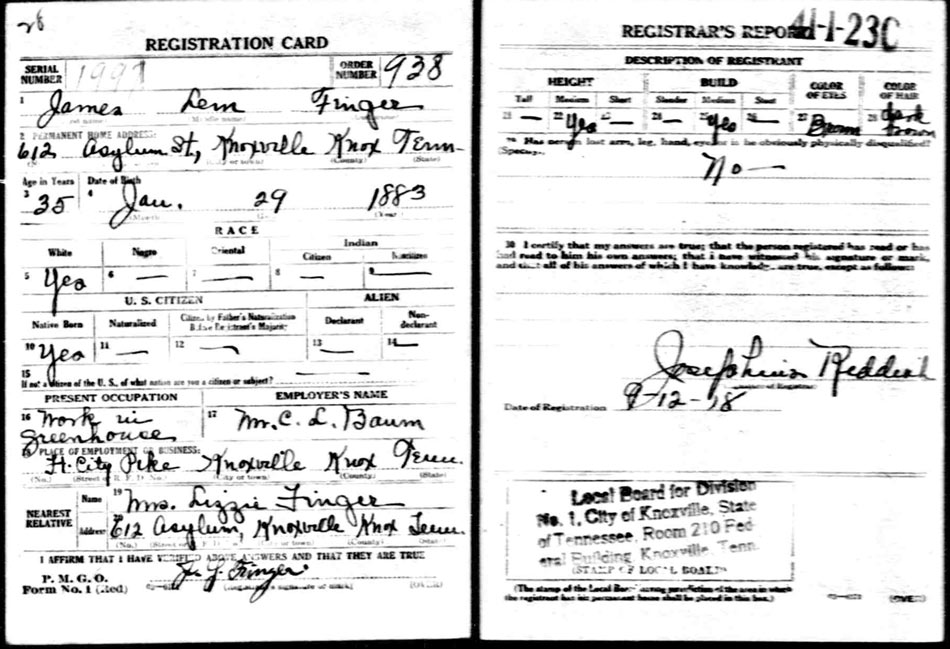 28
REGISTRATION CARD
SERIAL NUMBER 1997 ORDER NUMBER 938
1 James Lem Finger
2 PERMANENT HOME ADDRESS:
612 Asylum St, Knoxville Knox Tenn
(County) (State)
Age in Years Date of Birth
3 35 4 Jan. 29 1883
RACE
White Negro Oriental Indian
Citizen
5 Yes 6 — 7 — 8 — 9 —
U. S. CITIZEN ALIEN
Native Born Naturalized Citizen by Father's Naturalization Before Registrant's Majority Declarant Non-declarant
10 Yes 11 — 12 — 13 — 14 —
15
If not a citizen of the U. S., of what nation are you a citizen or subject?
PRESENT OCCUPATION EMPLOYER'S NAME
16 Work in greenhouse 17 Mr. C. L. Baum
PLACE OF EMPLOYMENT OR BUSINESS:
Ft. City Pike Knoxville Knox Tenn.
(No.) (Street or R. F. D. No.) (City or town) (County) (State)
NEAREST RELATIVE
Name 19 Mrs. Lizzie Finger
Address 20 612 Asylum, Knoxville Knox Tenn.
(No.) (County)
I AFFIRM THAT I HAVE VERIFIED ABOVE ANSWERS AND THAT THEY ARE TRUE
P. M. G. O.
Form No. 1 (Red)
Finger
(Registrant's signature or mark) (OVER)
REGISTRAR'S REPORT 41-1-23C
DESCRIPTION OF REGISTRANT
HEIGHT BUILD COLOR OF EYES COLOR OF HAIR
Tall Medium Short Slender Medium Stout
21 — 22 Yes 23 — 24 — 25 Yes 26 — 27 Brown 28 dark brown
29 Has person lost arm, leg, hand, eye, or is he obviously physically disqualified?
(Specify.)
No —
30 I certify that my answers are true; that the person registered has read or has
had read to him his own answers; that I have witnessed his signature or mark,
and that all of his answers of which I have knowledge are true, except as follows:
Reddish
Date of Registration 9-12-18
Local Board for Division
No. 1, City of Knoxville, State
of Tennessee, Room 210 Fed-
eral Building, Knoxville, Tenn.
(STAMP OF LOCAL BOARD)
(The stamp of the Local Board having jurisdiction of the area in which
the registrant has his permanent home shall be placed in this box.)
(OVER)